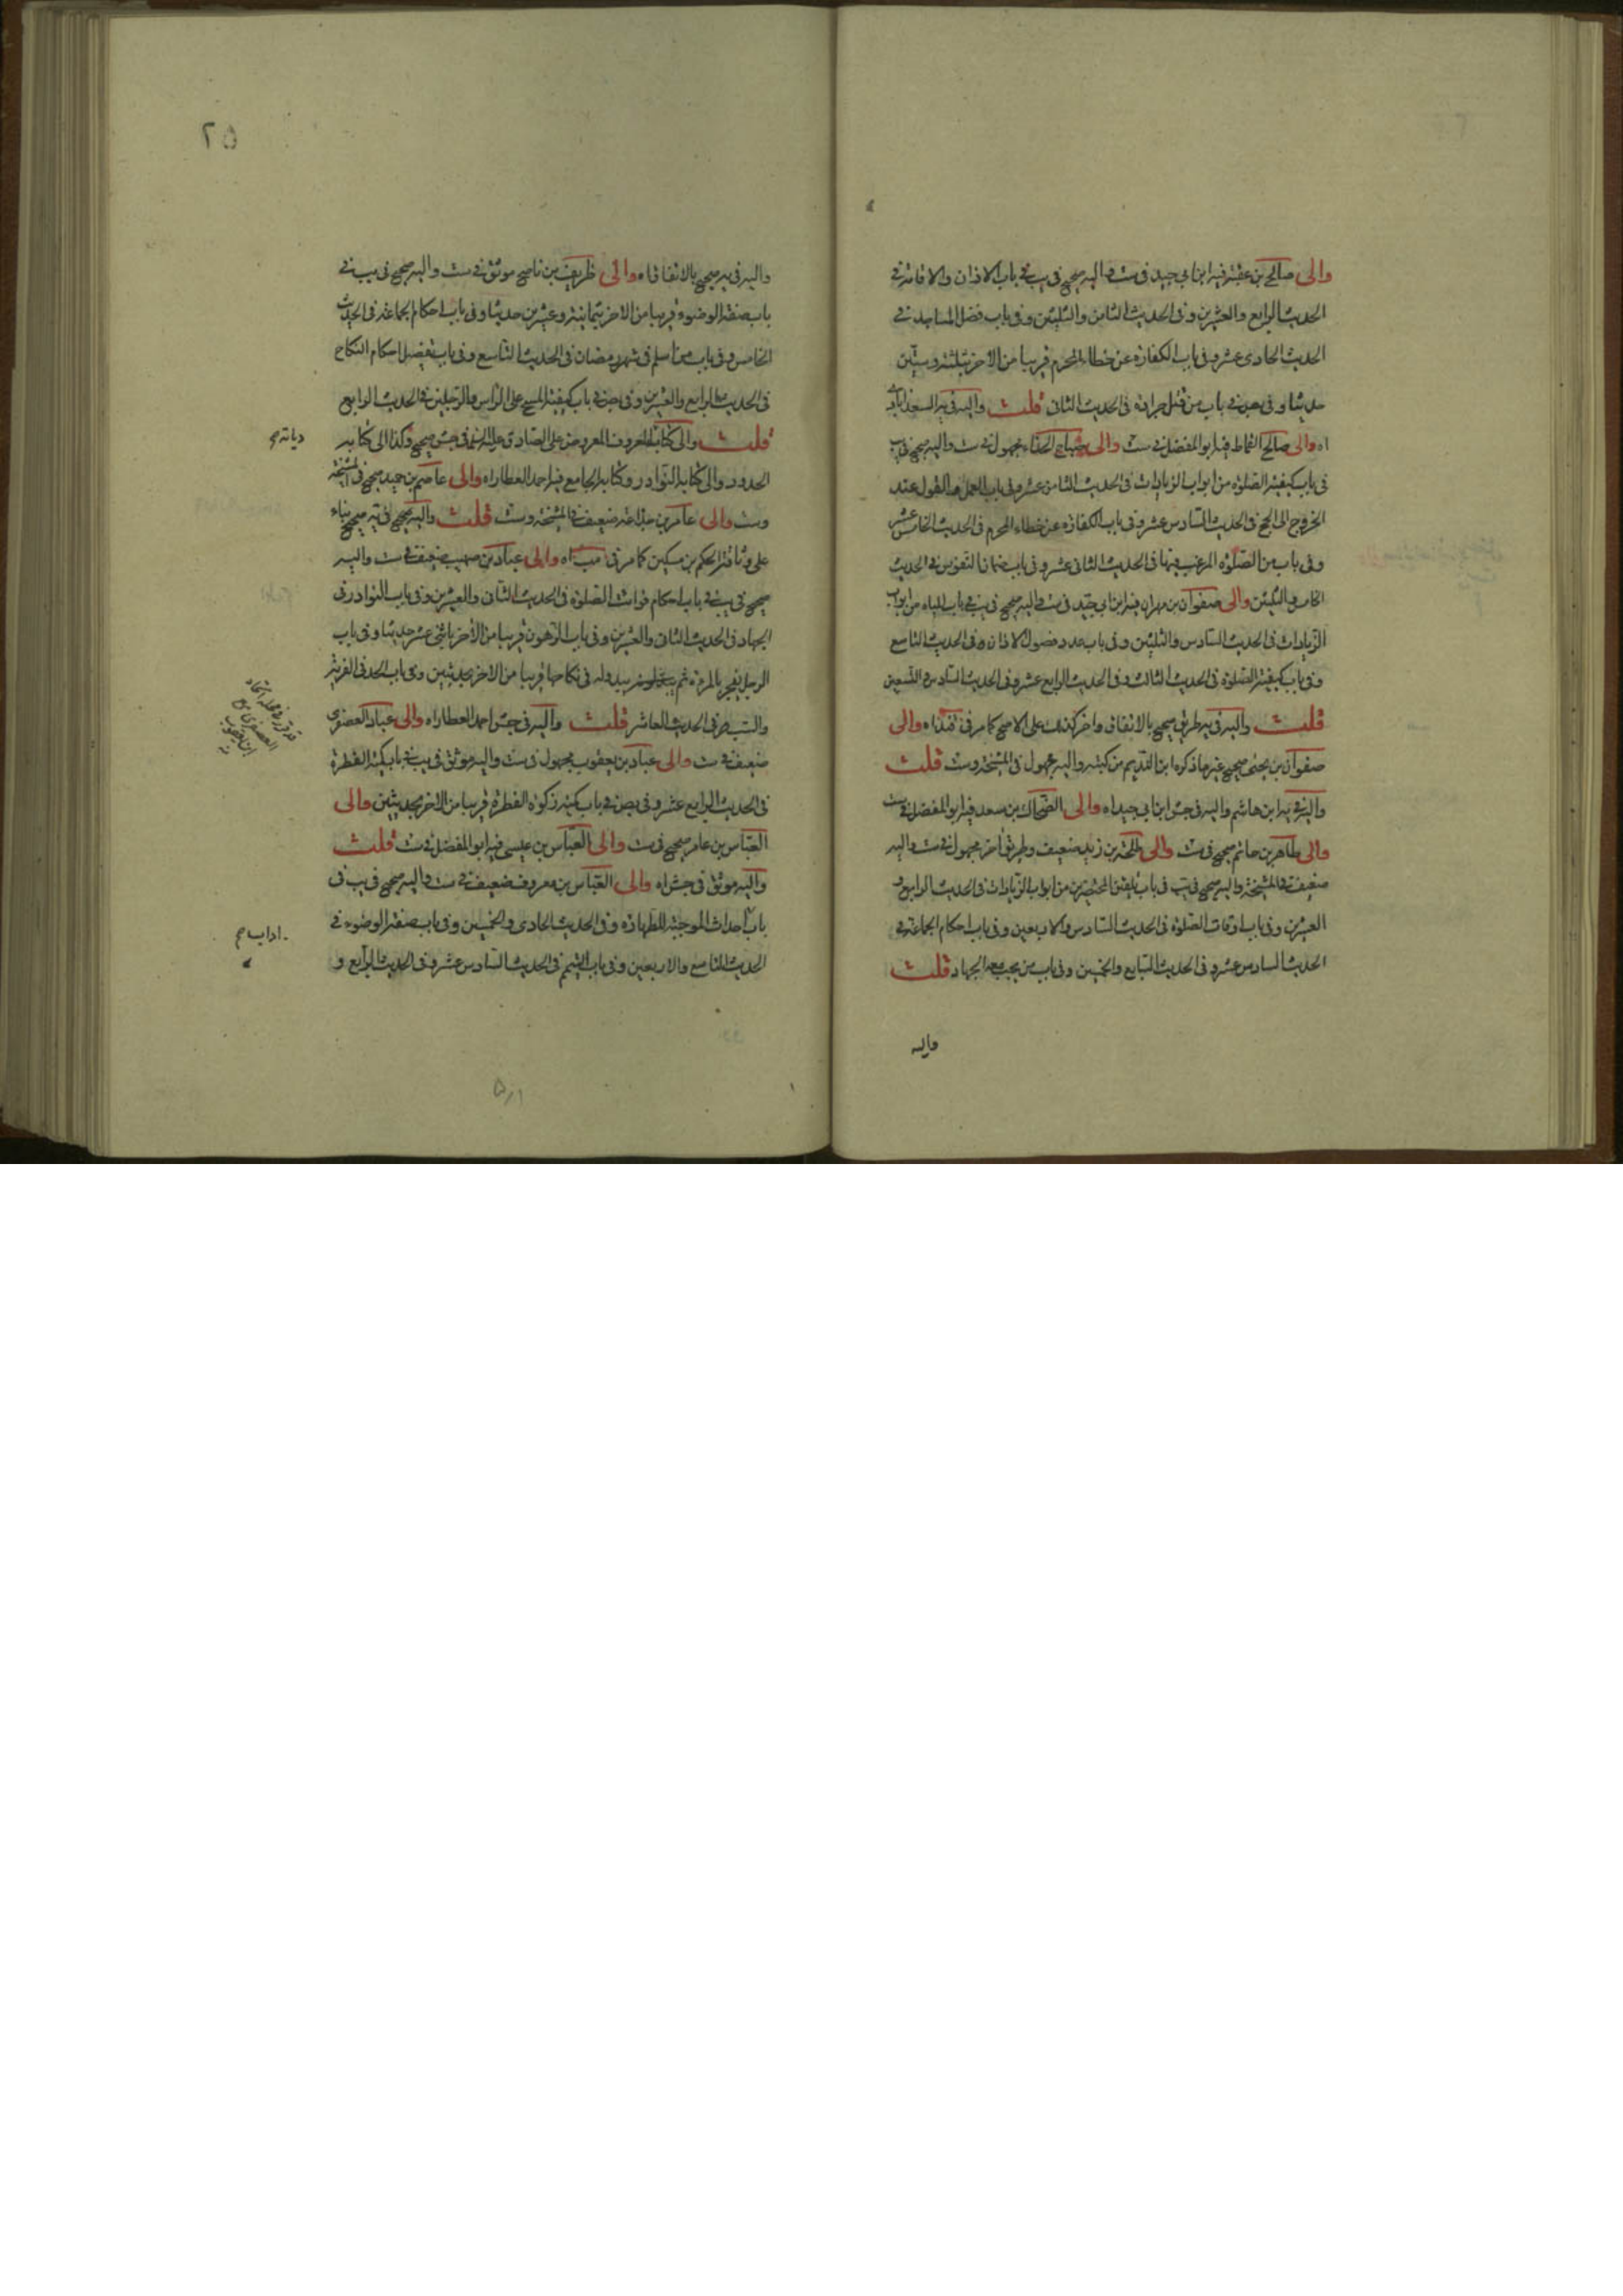 والى صالح بن عقبة فيه ابن ابي جيد في ست واليه صحيح في يب في باب الاذان والاقامة في
الحديث الرابع والعشرين وفي الحديث الثامن والثلثين وفي باب فضل المساجد في
الحديث الحادى عشر وفي باب الكفارة عن خطاء المحرم قريبا من الاخر بثلثة وستين
حديثا وفي باب من قتل جرادة في الحديث الثاني قلت واليه في يه السعدابادى
اه والى صالح القماط فيه ابو المفضل في ست والى صباح الحذاء مجهول في ست واليه صحيح في يب
في باب كيفية الصلوة من ابواب الزيادات في الحديث الثامن عشر وفي باب العمل والقول عند
الخروج الى الحج في الحديث السادس عشر وفي باب الكفارة عن خطاء المحرم في الحديث الخامس عشر
وفي باب من الصلوة المرغب فيها في الحديث الثاني عشر وفي باب ضمان النفوس في الحديث
الخامس والثلثين والى صفوان بن مهران فيه ابن ابي جيد في ست واليه صحيح في يب في باب المياه من ابواب
الزيادات في الحديث السادس والثلثين وفي باب عدد فصول الاذان وفي الحديث التاسع
وفي باب كيفية الصلوة في الحديث الثالث وفي الحديث الرابع عشر وفي الحديث السادس والتسعين
قلت واليه في يه طريق صحيح بالاتفاق واخر كذلك على الاصح كما مر في اه والى
صفوان بن يحيى صحيح غير ما ذكره ابن النديم من كتبه واليه مجهول في المشيخة وست قلت
واليه في يه ابن هاشم واليه في جش ابن ابي جيد اه والى الضحاك بن سعد فيه ابو المفضل في ست
والى طاهر بن حاتم صحيح في ست والى طلحة بن زيد ضعيف وطريق اخر مجهول في ست واليه
ضعيف في المشيخة واليه صحيح في يب في باب تلقين المحتضرين من ابواب الزيادات في الحديث الرابع و
العشرين وفي باب اوقات الصلوة في الحديث السادس والاربعين وفي باب احكام الجماعة في
الحديث السادس عشر وفي الحديث السابع والخمسين وفي باب من يجب معه الجهاد قلت
واليه
٢٥
واليه في يه صحيح بالاتفاق اه والى ظريف بن ناصح موثق في ست واليه صحيح في يب في
باب صفة الوضوء قريبا من الاخر بثمانية وعشرين حديثا وفي باب احكام الجماعة في الحديث
الخامس وفي باب من اسلم في شهر رمضان في الحديث التاسع وفي باب تفصيل احكام النكاح
في الحديث الرابع والعشرين وفي بص في باب كيفية المسح على الراس والرجلين في الحديث الرابع
قلت والى كتابه المعروف المعروض على الصادق عليه السلم في جش صحيح وكذا الى كتابه
الحدود والى كتابه النوادر وكتابه الجامع فيه احمد العطار اه والى عاصم بن حميد صحيح في المشيخة
وست والى عامر بن جذاعة ضعيف في المشيخة وست قلت واليه صحيح في يه صحيح بناء
على وثاقة الحكم بن مسكين كما مر في اه والى عباد بن صهيب ضعيف في ست واليه
صحيح في يب في باب احكام فوائت الصلوة في الحديث الثاني والعشرين وفي باب النوادر في
الجهاد في الحديث الثاني والعشرين وفي باب الرهون قريبا من الاخر باثنى عشر حديثا وفي باب
الرجل يفجر بالمرءة ثم يبدو له في نكاحها قريبا من الاخر بحديثين وفي باب الحد في الفرية
والسب في الحديث العاشر قلت واليه في جش احمد العطار اه والى عباد العصفرى
ضعيف في ست والى عباد بن يعقوب مجهول في ست واليه موثق في يب في باب كمية الفطرة
في الحديث الرابع عشر وفي بص في باب كمية زكوة الفطرة قريبا من الاخر بحديثين والى
العباس بن عامر صحيح في ست والى العباس بن عيسى فيه ابو المفضل في ست قلت
واليه موثق في جش اه والى العباس بن معروف ضعيف في ست واليه صحيح في يب في
باب احداث الموجبة للطهارة وفي الحديث الحادى والخمسين وفي باب صفة الوضوء في
الحديث التاسع والاربعين وفي باب التيمم في الحديث السادس عشر وفي الحديث الرابع و
دياته صح
اداب صح